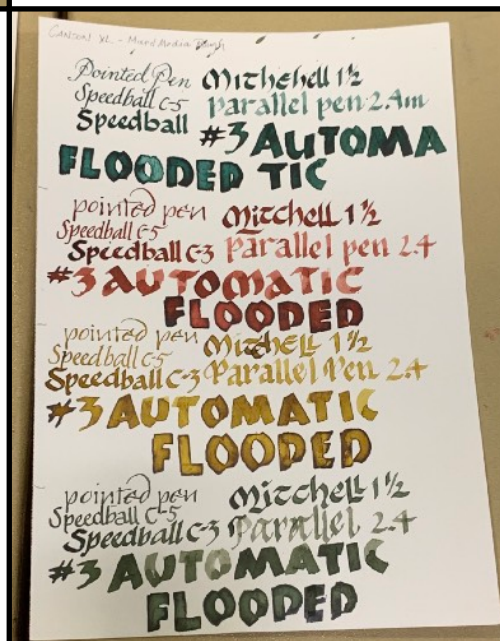 CANSON XL - Mixed Media Rough
Pointed Pen Mitchehell 1½
Speedball C-5 parallel pen 2.4m
Speedball #3 AUTOMA
FLOODED TIC
pointed pen Mitchell 1½
Speedball C-5
Speedball C-3 parallel pen 2.4
#3 AUTOMATIC
FLOODED
pointed pen MITCHELL 1½
Speedball C-5
Speedball C-3 Parallel Pen 2.4
#3 AUTOMATIC
FLOODED
pointed pen Mitchell 1½
Speedball C-5
Speedball C-3 Parallel 2.4
#3 AUTOMATIC
FLOODED